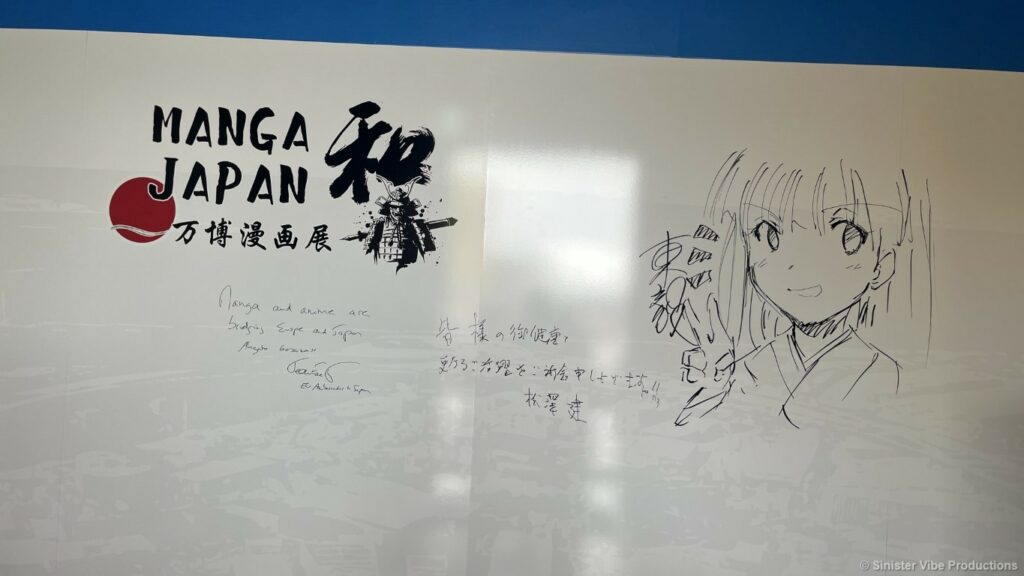 MANGA
JAPAN 和
万博漫画展
Manga and anime are
bridging Europe and Japan
EU Ambassador to Japan
皆様の御健康と
更なるご活躍をご祈念申し上げます!!
松澤 建
© Sinister Vibe Productions